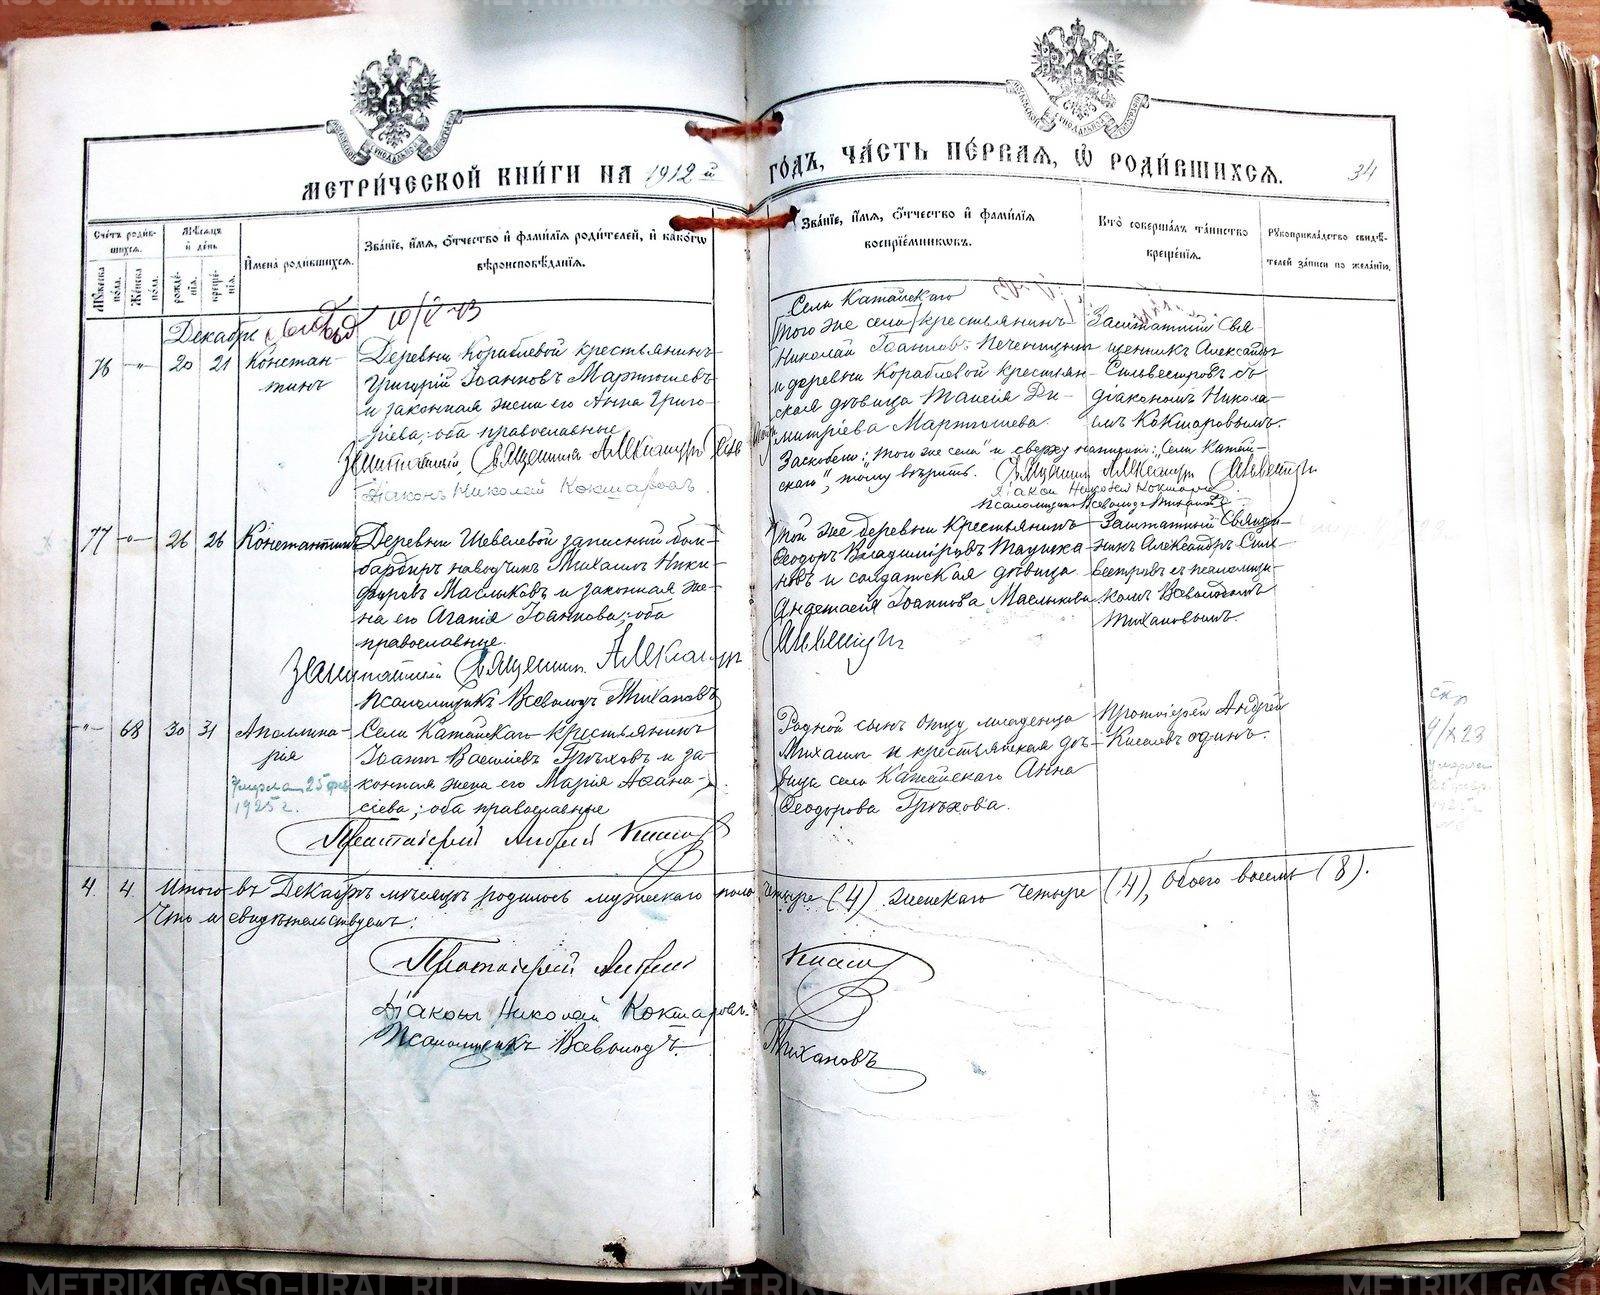 МЕТРИ́ЧЕСКОЙ КНИ́ГИ НА 1912 й ГО́ДЪ, ЧА́СТЬ ПЕ́РВАЯ, Ѡ РОДИ́ВШИХСЯ.
34
Сче́тъ роди́вшихся.
Му́жеска по́ла.
Же́нска по́ла.
Мѣ́сяцъ и де́нь
рожде́нія.
креще́нія.
И́мена роди́вшихся.
Зва́ніе, и́мя, о́тчество и фами́лія роди́телей, и како́гѡ
вѣроисповѣ́данія.
Зва́ніе, и́мя, о́тчество и фами́лія
воспріе́мниковъ.
Кто̀ соверша́лъ та́инство
креще́нія.
Рукоприкла́дство свидѣ́-
телей за́писи по жела́нію.
Декабрь
76 -"- 20 21 Констан-
тинъ
Деревни Кораблевой крестьянинъ
Григорій Іоанновъ Мартюшевъ
и законная жена его Анна Григо-
ріева; оба православные
Заштатный Священникъ Александръ
Діаконъ Николай Кокшаровъ.
Села Катайскаго
того же села крестьянинъ
Николай Іоанновъ Печеницынъ
и деревни Кораблевой крестьян-
ская дѣвица Таисія Ди-
митріева Мартюшева.
Заскоблено: "того же села" и сверху написано: "Села Катай-
скаго", тому вѣрить. Священникъ Александръ Сильвестровъ
Діаконъ Николай Кокшаровъ.
Псаломщикъ Всеволодъ Тихановъ
Заштатный Свя-
щенникъ Александръ
Сильвестровъ съ
діакономъ Никола-
емъ Кокшаровымъ.
77 -"- 26 26 Константинъ
Деревни Шевелевой запасный бом-
бардиръ наводчикъ Михаилъ Ники-
форовъ Маслыковъ и законная же-
на его Агапія Іоаннова; оба
православные.
Заштатный Священникъ Александръ
Псаломщикъ Всеволодъ Тихановъ
той же деревни крестьянинъ
Ѳеодоръ Владиміровъ
и солдатская дѣвица
Анастасія Іоаннова Маслыкова.
Сильвестровъ
Заштатный Священ-
никъ Александръ Силь-
вестровъ съ псаломщи-
комъ Всеволодомъ
Тихановымъ.
-"- 68 30 31 Аполлина-
рія
Умерла 25 фев
1925 г.
Села Катайскаго крестьянинъ
Іоаннъ Василіевъ Грѣховъ и за-
конная жена его Марія Аѳана-
сіева; оба православные
Протоіерей Андрей Киселевъ
Родной сынъ отцу младенца
Михаилъ и крестьянская дѣ-
вица села Катайскаго Анна
Ѳеодорова Грѣхова.
Протоіерей Андрей
Киселевъ одинъ.
4 4 Итого въ Декабрѣ мѣсяцѣ родилось мужескаго пола четыре (4) женскаго четыре (4), обоего восемь (8).
Что и свидѣтельствуемъ:
Протоіерей Андрей Киселевъ
Діаконъ Николай Кокшаровъ.
Псаломщикъ Всеволодъ Тихановъ
METRIKI.GASO-URAL.RU